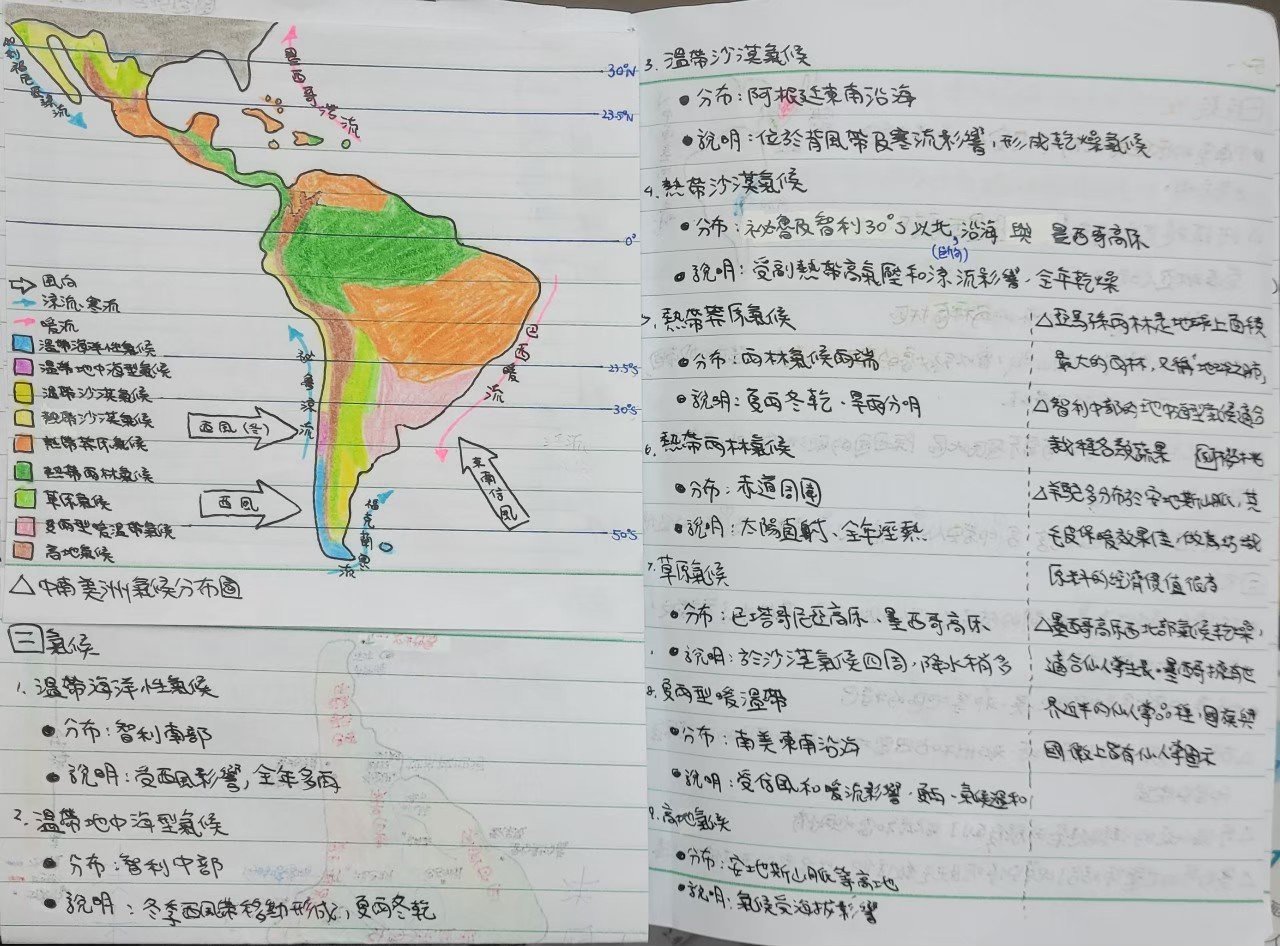 加利福尼亞涼流
墨西哥灣流
30°N
23.5°N
0°
23.5°S
30°S
50°S
巴西暖流
祕魯涼流
西風(冬)
西風
東南信風
福克蘭寒流
風向
涼流、寒流
暖流
溫帶海洋性氣候
溫帶地中海型氣候
溫帶沙漠氣候
熱帶沙漠氣候
熱帶莽原氣候
熱帶雨林氣候
草原氣候
夏雨型暖溫帶氣候
高地氣候
△中南美洲氣候分布圖
三 氣候
1. 溫帶海洋性氣候
• 分布:智利南部
• 說明:受西風影響,全年多雨
2. 溫帶地中海型氣候
• 分布:智利中部
• 說明:冬季西風帶移動形成,夏雨冬乾
3. 溫帶沙漠氣候
• 分布:阿根廷東南沿海
• 說明:位於背風帶及寒流影響,形成乾燥氣候
4. 熱帶沙漠氣候
• 分布:祕魯及智利30°S以北,沿海與 墨西哥高原
• 說明:受副熱帶高氣壓和涼流影響,全年乾燥
5. 熱帶莽原氣候
• 分布:雨林氣候兩端
• 說明:夏雨冬乾、旱雨分明
6. 熱帶雨林氣候
• 分布:赤道周圍
• 說明:太陽直射、全年溼熱
7. 草原氣候
• 分布:巴塔哥尼亞高原、墨西哥高原
• 說明:於沙漠氣候四周,降水稍多
8. 夏雨型暖溫帶
• 分布:南美東南沿海
• 說明:受信風和暖流影響,夏雨、氣候溫和
9. 高地氣候
• 分布:安地斯山脈等高地
• 說明:氣候受海拔影響
△亞馬孫雨林是地球上面積
最大的雨林,又稱「地球之肺」
△智利中部的地中海型氣候適合
栽種各類蔬果
△羊駝多分布於安地斯山脈,其
毛皮保暖效果佳,做為紡織
原料的經濟價值很高
△墨西哥高原西北部氣候乾燥,
適合仙人掌生長,墨西哥擁有世
界近半的仙人掌品種,國旗與
國徽上皆有仙人掌圖示